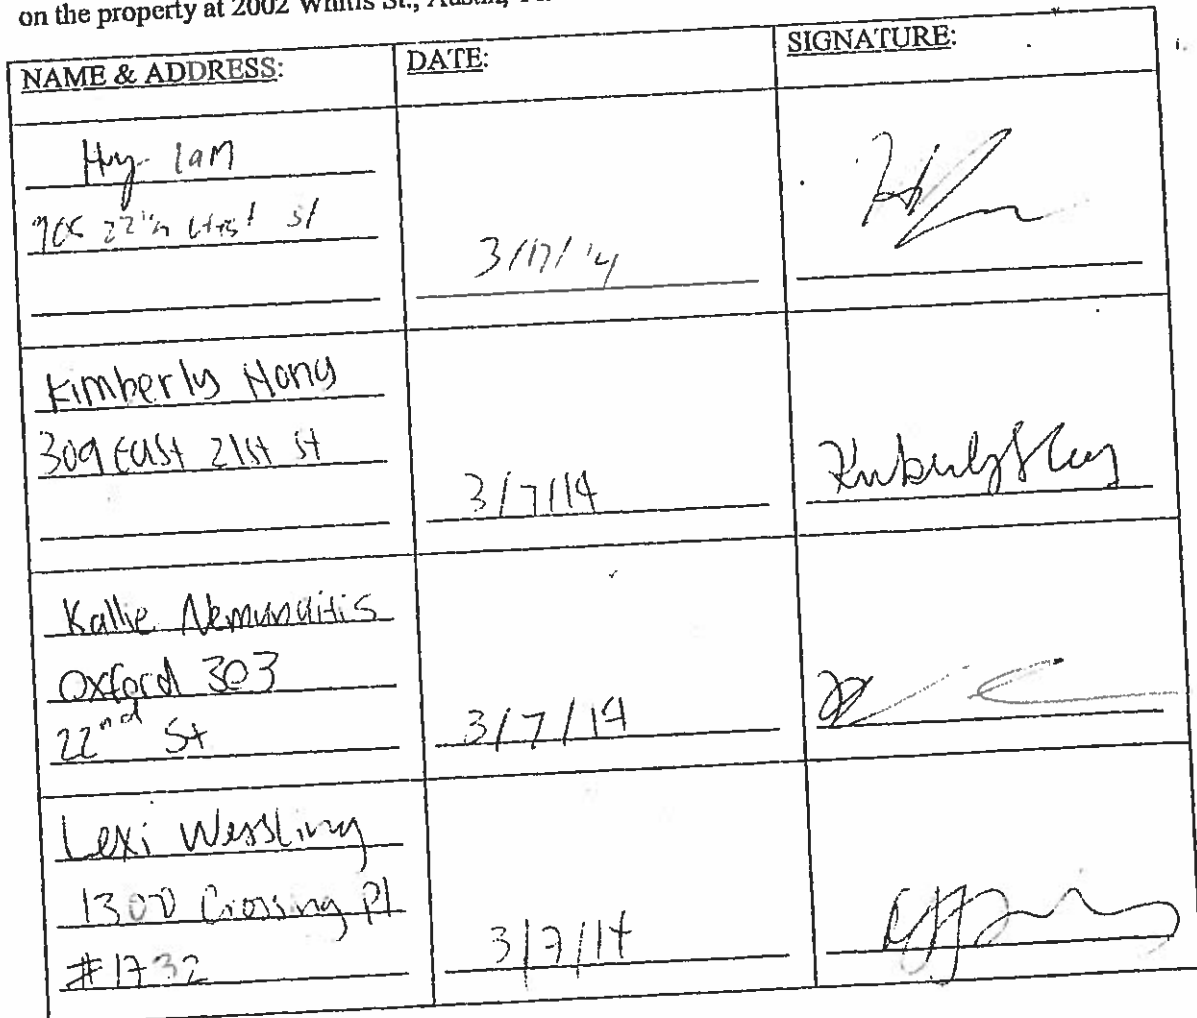 on the property at 2002 Whitis St., Austin,
NAME & ADDRESS:
DATE:
SIGNATURE:
Huy Lam
22nd st
3/17/14
Kimberly Hong
309 East 21st st
3/7/14
Kallie Nemunaitis
Oxford 303
22nd St
3/7/14
Lexi Wessling
1300 Crossing Pl
#1732
3/7/14